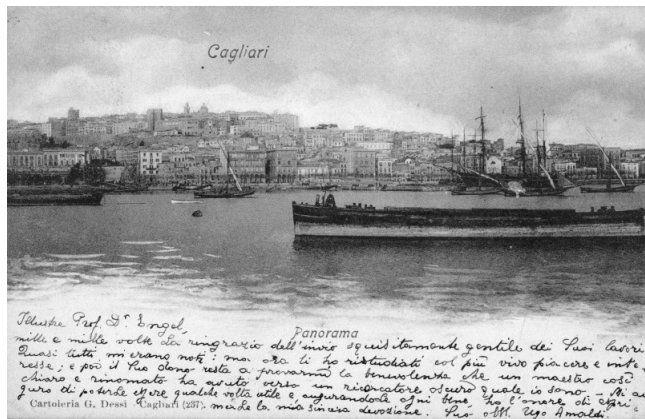 Cagliari
Illustre Prof. Dr Engel,
Panorama
mille e mille volte La ringrazio dell'invio squisitamente gentile dei Suoi lavori.
Quasi tutti mi erano noti: ma ora li ho ristudiati col più vivo piacere e inte-
resse; e poi il Suo dono resta a provarmi la benevolenza che un maestro così
chiaro e rinomato ha avuto verso un ricercatore oscuro quale io sono. Mi au-
guro di poterle essere qualche volta utile e, augurandole ogni bene, ho l'onore di
Cartoleria G. Dessì Cagliari (237). la mia sincera devozione. Suo Ugo Amaldi